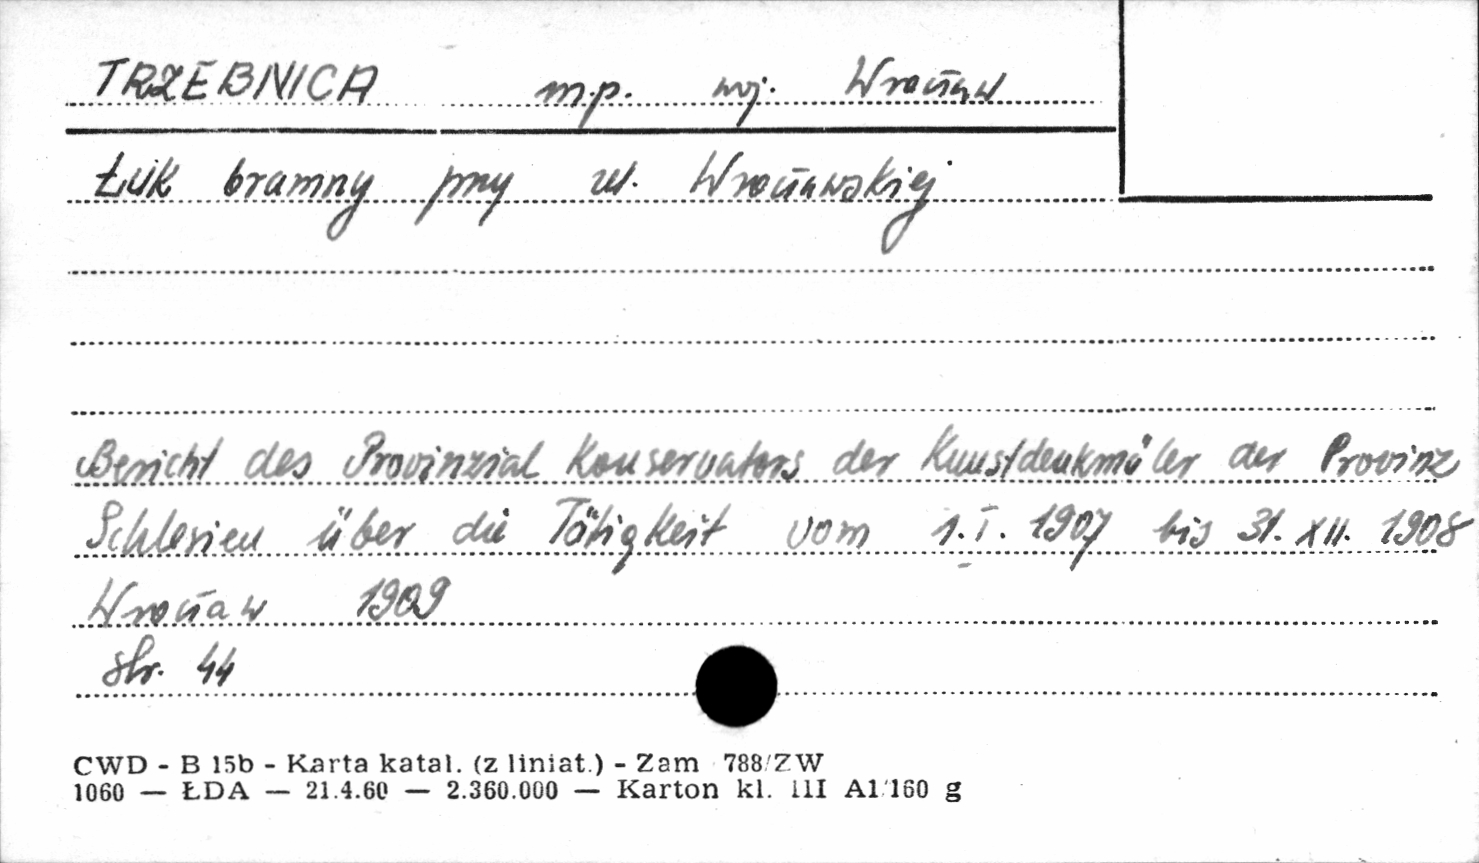 TRZEBNICA m.p. woj. Wrocław
Łuk bramny przy ul. Wrocławskiej
Bericht des Provinzial Konservators der Kunstdenkmäler der Provinz
Schlesien über die Tätigkeit vom 1.I. 1907 bis 31. XII. 1908
Wrocław 1909
str. 44
CWD - B 15b - Karta katal. (z liniat.) - Zam 788/ZW
1060 — ŁDA — 21.4.60 — 2.360.000 — Karton kl. III A1/160 g